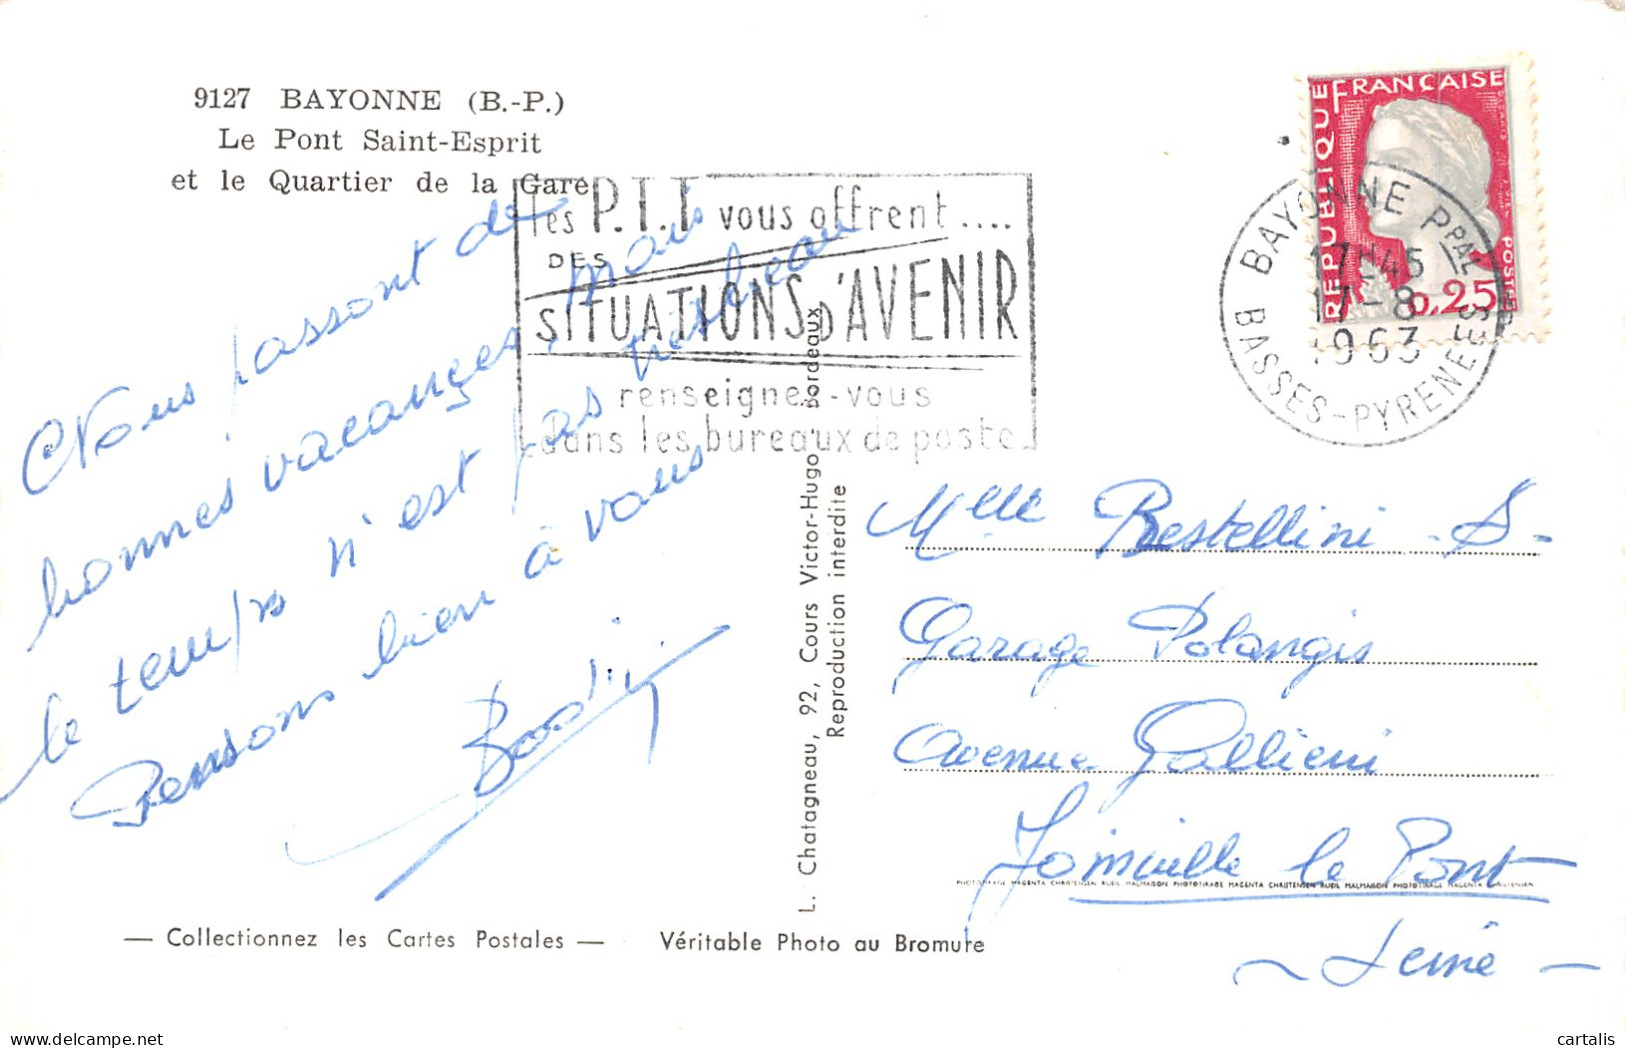 9127 BAYONNE (B.-P.)
Le Pont Saint-Esprit
et le Quartier de la Gare
les P.T.T vous offrent ....
DES
SITUATIONS D'AVENIR
renseignez-vous
dans les bureaux de poste
RÉPUBLIQUE FRANÇAISE
POSTES
0,25
BAYONNE PPAL
17H45
17-8
1963
BASSES-PYRENEES
Nous passont de
bonnes vacances, mais
le temps n'est pas très beau
Pensons bien à vous
L. Chatagneau, 92, Cours Victor-Hugo, Bordeaux
Reproduction interdite
Melle Bestellini - S -
Garage Polangis
Avenue Gallieni
Joinville le Pont
- Seine -
PHOTOTIRAGE MAGENTA CHRISTENSEN RUEIL MALMAISON PHOTOTIRAGE MAGENTA CHRISTENSEN RUEIL MALMAISON PHOTOTIRAGE MAGENTA CHRISTENSEN
— Collectionnez les Cartes Postales — Véritable Photo au Bromure
delcampe.net
cartalis